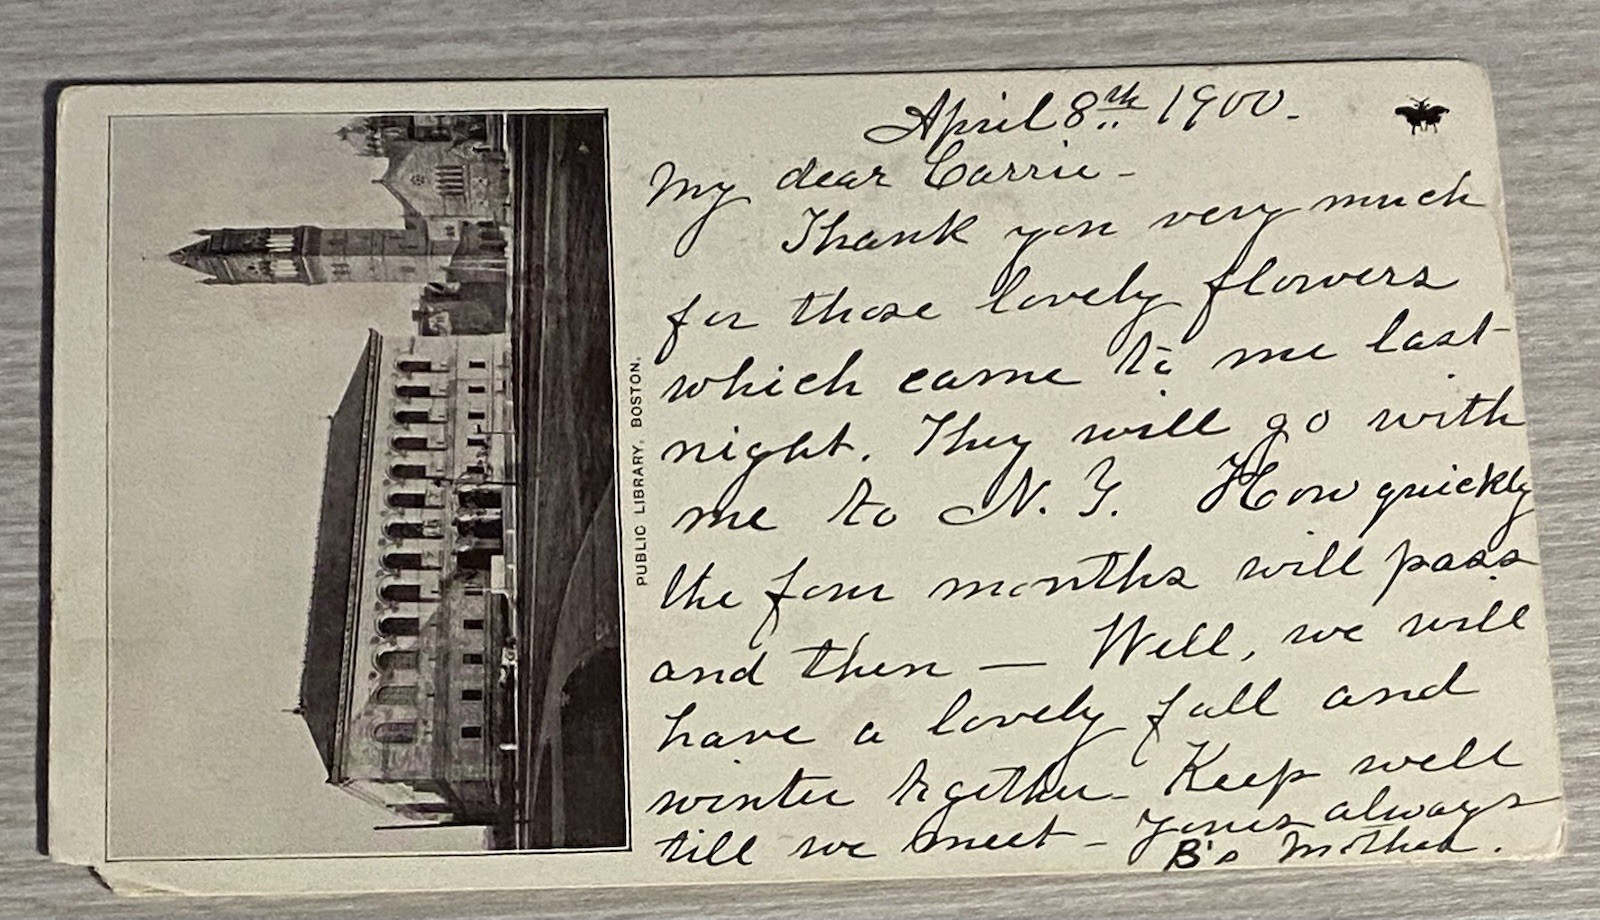 April 8th 1900.
My dear Carrie -
Thank you very much
for those lovely flowers
which came to me last
night. They will go with
me to N.Y. How quickly
the four months will pass
and then — Well, we will
have a lovely fall and
winter together - Keep well
till we meet - Yours always
B's Mother.
PUBLIC LIBRARY, BOSTON.